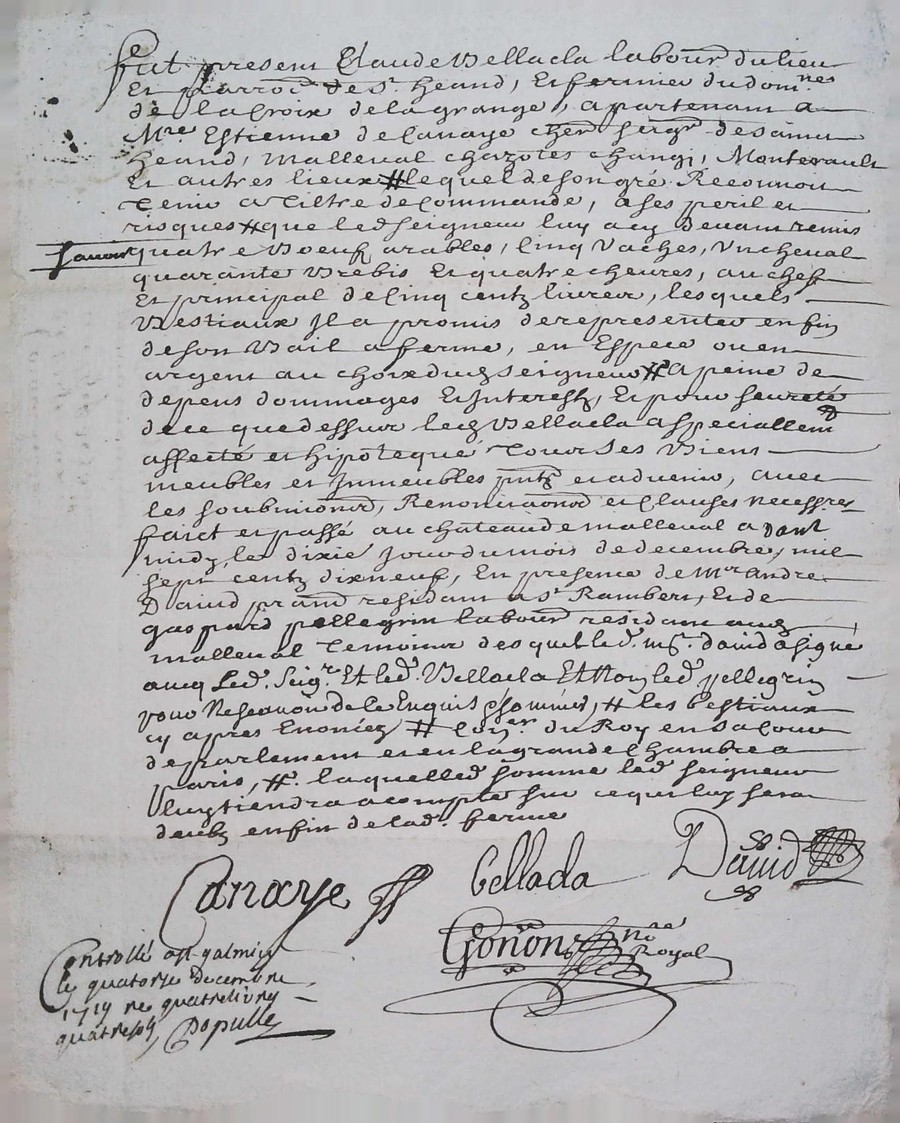 fut present Claude Vellada labour. du lieu
Et parroc. de St. heand, Et fermier du dom.nes
de la Croix de la grange, apartenant a
Mre. Estienne de Canaye cher. seigr. de saint
heand, malleval chazotes changi, Monterault
Et autres lieux # lequel de son gré Reconnoit
Tenir a tiltre de Commande, a ses peril et
risques # que led. seigneur luy a cy devant remis
Scavoir quatre Boeuf arables, Cinq Vaches, Un cheval
quarante Brebis Et quatre chevres, au chef
Et principal de Cinq centz livres, lesquels
Bestiaux Il a promis de representer en fin
de son Bail a ferme, en Espece ou en
argent au choix dud. seigneur # a peine de
depens dommages Et Interestz, Et pour seureté
de ce que dessur led. Vellada a speciallemt
affecté et hipotequé Tour ses Biens
meubles et Immeubles pntz et advenir, avec
les soubmiond, Renonciaond et Clauses necessres
faict et passé au château de malleval avant
midy, le dixie jour du mois de decembre, mil
sept centz dixneuf, En presence de Mr. andre
David prand residant a St Rambert, Et de
gaspard pellegrin labour. residant aud.
malleval Temoinr desquel led. mr. david a signé
avecq Led. Seigr. Et led. Vellada Et Non led. pellegrin
pour Ne scavoir de le Enquis & sommés, # les bestiaux
cy apres Enoncez # Coner. du Roy en sa Cour
de parlement et en la grande Chambre a
paris, # laquelle d. somme led. seigneur
luy tiendra a compte sur ce qui luy sera
deubz en fin de lad. ferme
Canaye
Vellada
David
Gonon nre Royal
Controllé a St galmier
le quatorze decembre
1719 re quatre livres
quatre sols Populle